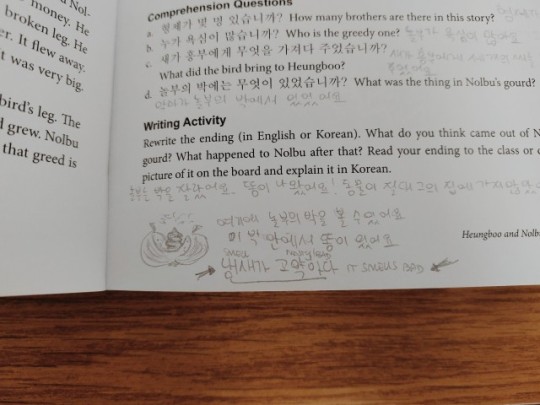 Nol-
money. He
broken leg. He
It flew away.
it was very big.
bird's leg. The
grew. Nolbu
that greed is
Comprehension Questions
a. 형제가 몇 명 있습니까? How many brothers are there in this story?
b. 누가 욕심이 많습니까? Who is the greedy one? 놀부가 욕심이 많아요
c. 새가 흥부에게 무엇을 가져다 주었습니까?
What did the bird bring to Heungboo?
d. 놀부의 박에는 무엇이 있었습니까? What was the thing in Nolbu's gourd?
놀부의 박에서 있었어요
Writing Activity
Rewrite the ending (in English or Korean). What do you think came out of N
gourd? What happened to Nolbu after that? Read your ending to the class or
picture of it on the board and explain it in Korean.
박을 잘랐어요. 똥이 나왔어요! 그의 집에
여기에 놀부의 박을 볼 수 있어요
이 박 안에서 똥이 있어요
Heungboo and Nolb
smell
냄새가 고약하다 IT SMELLS BAD